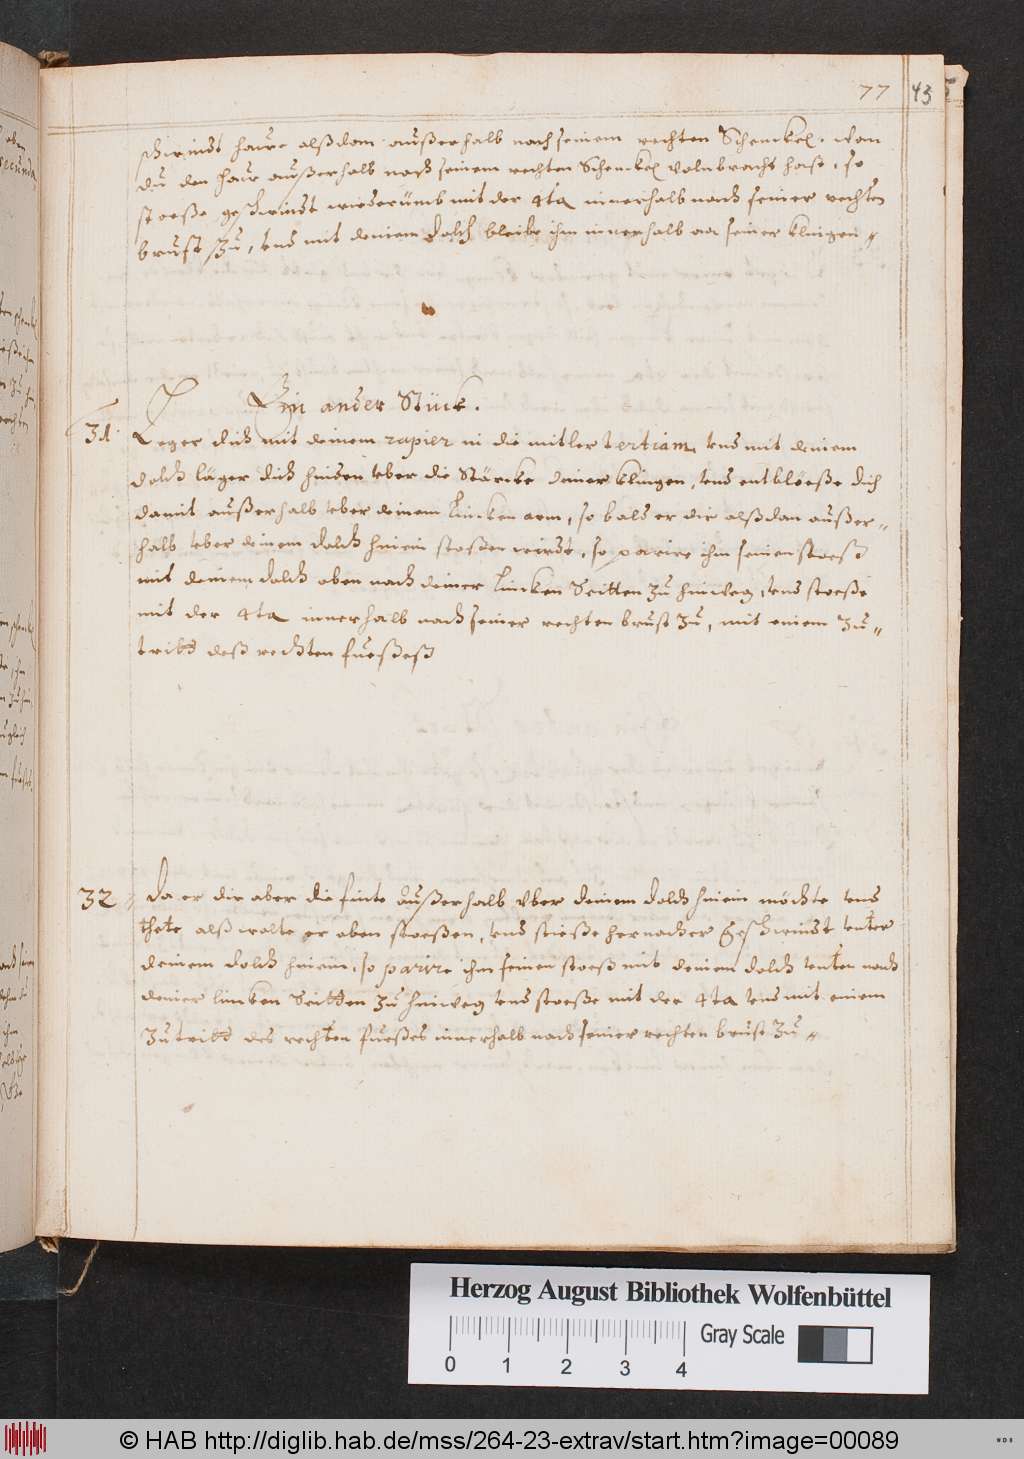 77
43
schwindt hauwe alßdan außerhalb nach seinem rechten Schenckel. Wan
du den hauw außerhalb nach seinem rechten Schenckel volnbracht haste, so
stoeße geschwindt wiederümb mit der 4ta innerhalb nach seiner rechten
brust zu, vnd mit deinem dolch bleibe ihm innerhalb an seiner klingen
Ein ander Stück.
31.
Leger dich mit deinem rapier in die mitler tertiam, vnd mit deinem
dolch läger dich hinden vber die Stärcke deiner klingen, vnd entblöeße dich
damit außerhalb vber deinem lincken arm, so bald er dir alßdan außer-
halb vber deinem dolch hinein stoßen wirdt, so parire ihm seinen stoeß
mit deinem dolch oben nach deiner lincken Seitten zu hinweg, vnd stoeße
mit der 4ta innerhalb nach seiner rechten brust zu, mit einem zu-
tridt deß rechten fueßeß
32
Da er dir aber die finte außerhalb vber deinem dolch hinein möchte vnd
thete alß wolte er oben stoeßen, vnd stieße hernacher geschwindt vnter
deinem dolch hinein, so parire ihm seinen stoeß mit deinem dolch vnten nach
deiner lincken Seitten zu hinweg vnd stoeße mit der 4ta vnd mit einem
zutridt des rechten fueßes innerhalb nach seiner rechten brust zu
Herzog August Bibliothek Wolfenbüttel
Gray Scale
0 1 2 3 4
© HAB http://diglib.hab.de/mss/264-23-extrav/start.htm?image=00089